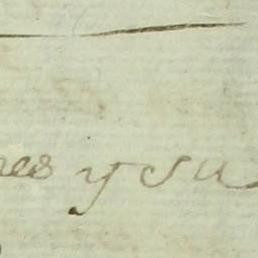 nes y su